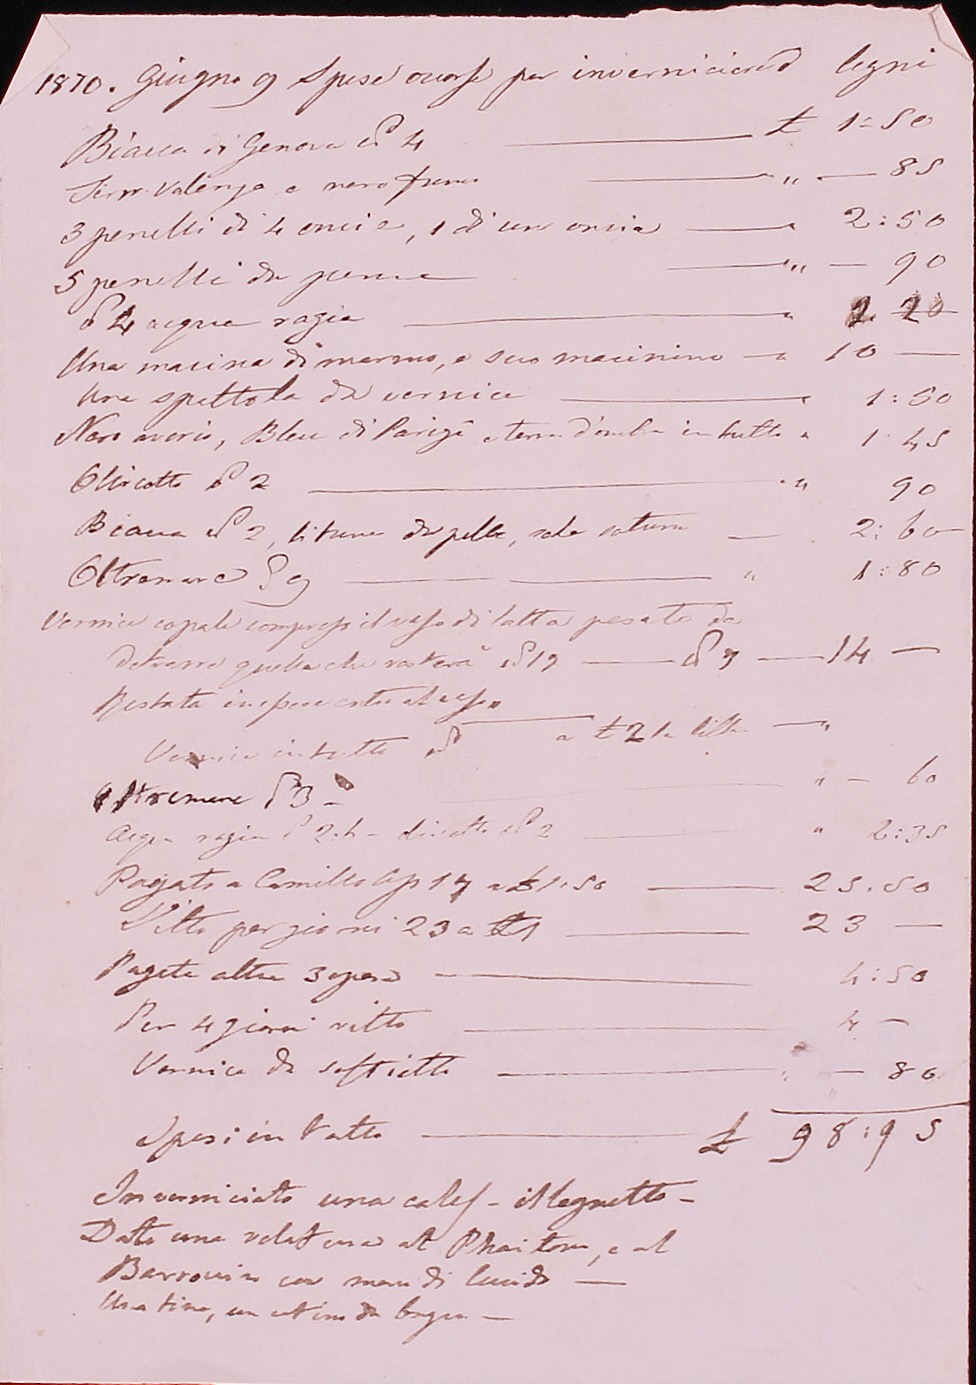 1870. Giugno 9 Spese occorse per inverniciare legni
Biacca di Genova ℔ 4 — £ 1:50
Terra Valenza e nero fumo — " — 85
3 penelli di 4 oncie, 1 di un oncia — " 2:50
5 penelli da penna — " — 90
℔ 4 acqua ragia — "
Una macina di marmo, e suo macinino — " 10 —
Una spattola da vernice — " 1:50
Nero avorio, Bleu di Parigi e terra d'ombra in tutto " 1:45
Olio cotto ℔ 2 — " 90
Biacca ℔ 2, di pelle, — 2:60
Oltremare 9 — " 1:80
Vernice copale compreso il vaso di latta pesato da
detrarre quella che resterà ℔ 19 — ℔ 7 — 14 —
Restata in essere entro al vaso
Vernice in tutto ℔ — a £ 2 la — "
Oltremare 3 — " — 60
Acqua ragia ℔ 2:4 — ℔ 2 — " 2:35
Pagato a Camillo Op 17 a £ 1:50 — 25.50
Vitto per giorni 23 a £ 1 — 23 —
Pagate altre 3 opere — 4:50
Per 4 giorni vitto — 4 —
Vernice da soffietto — " — 80
Spesi in Tutto — £ 98:95
Inverniciato una cales — il legnetto —
Dato una velatura al Phaiton, e al
Barroccino con mano di lucido —
Una tina, un da bagno —